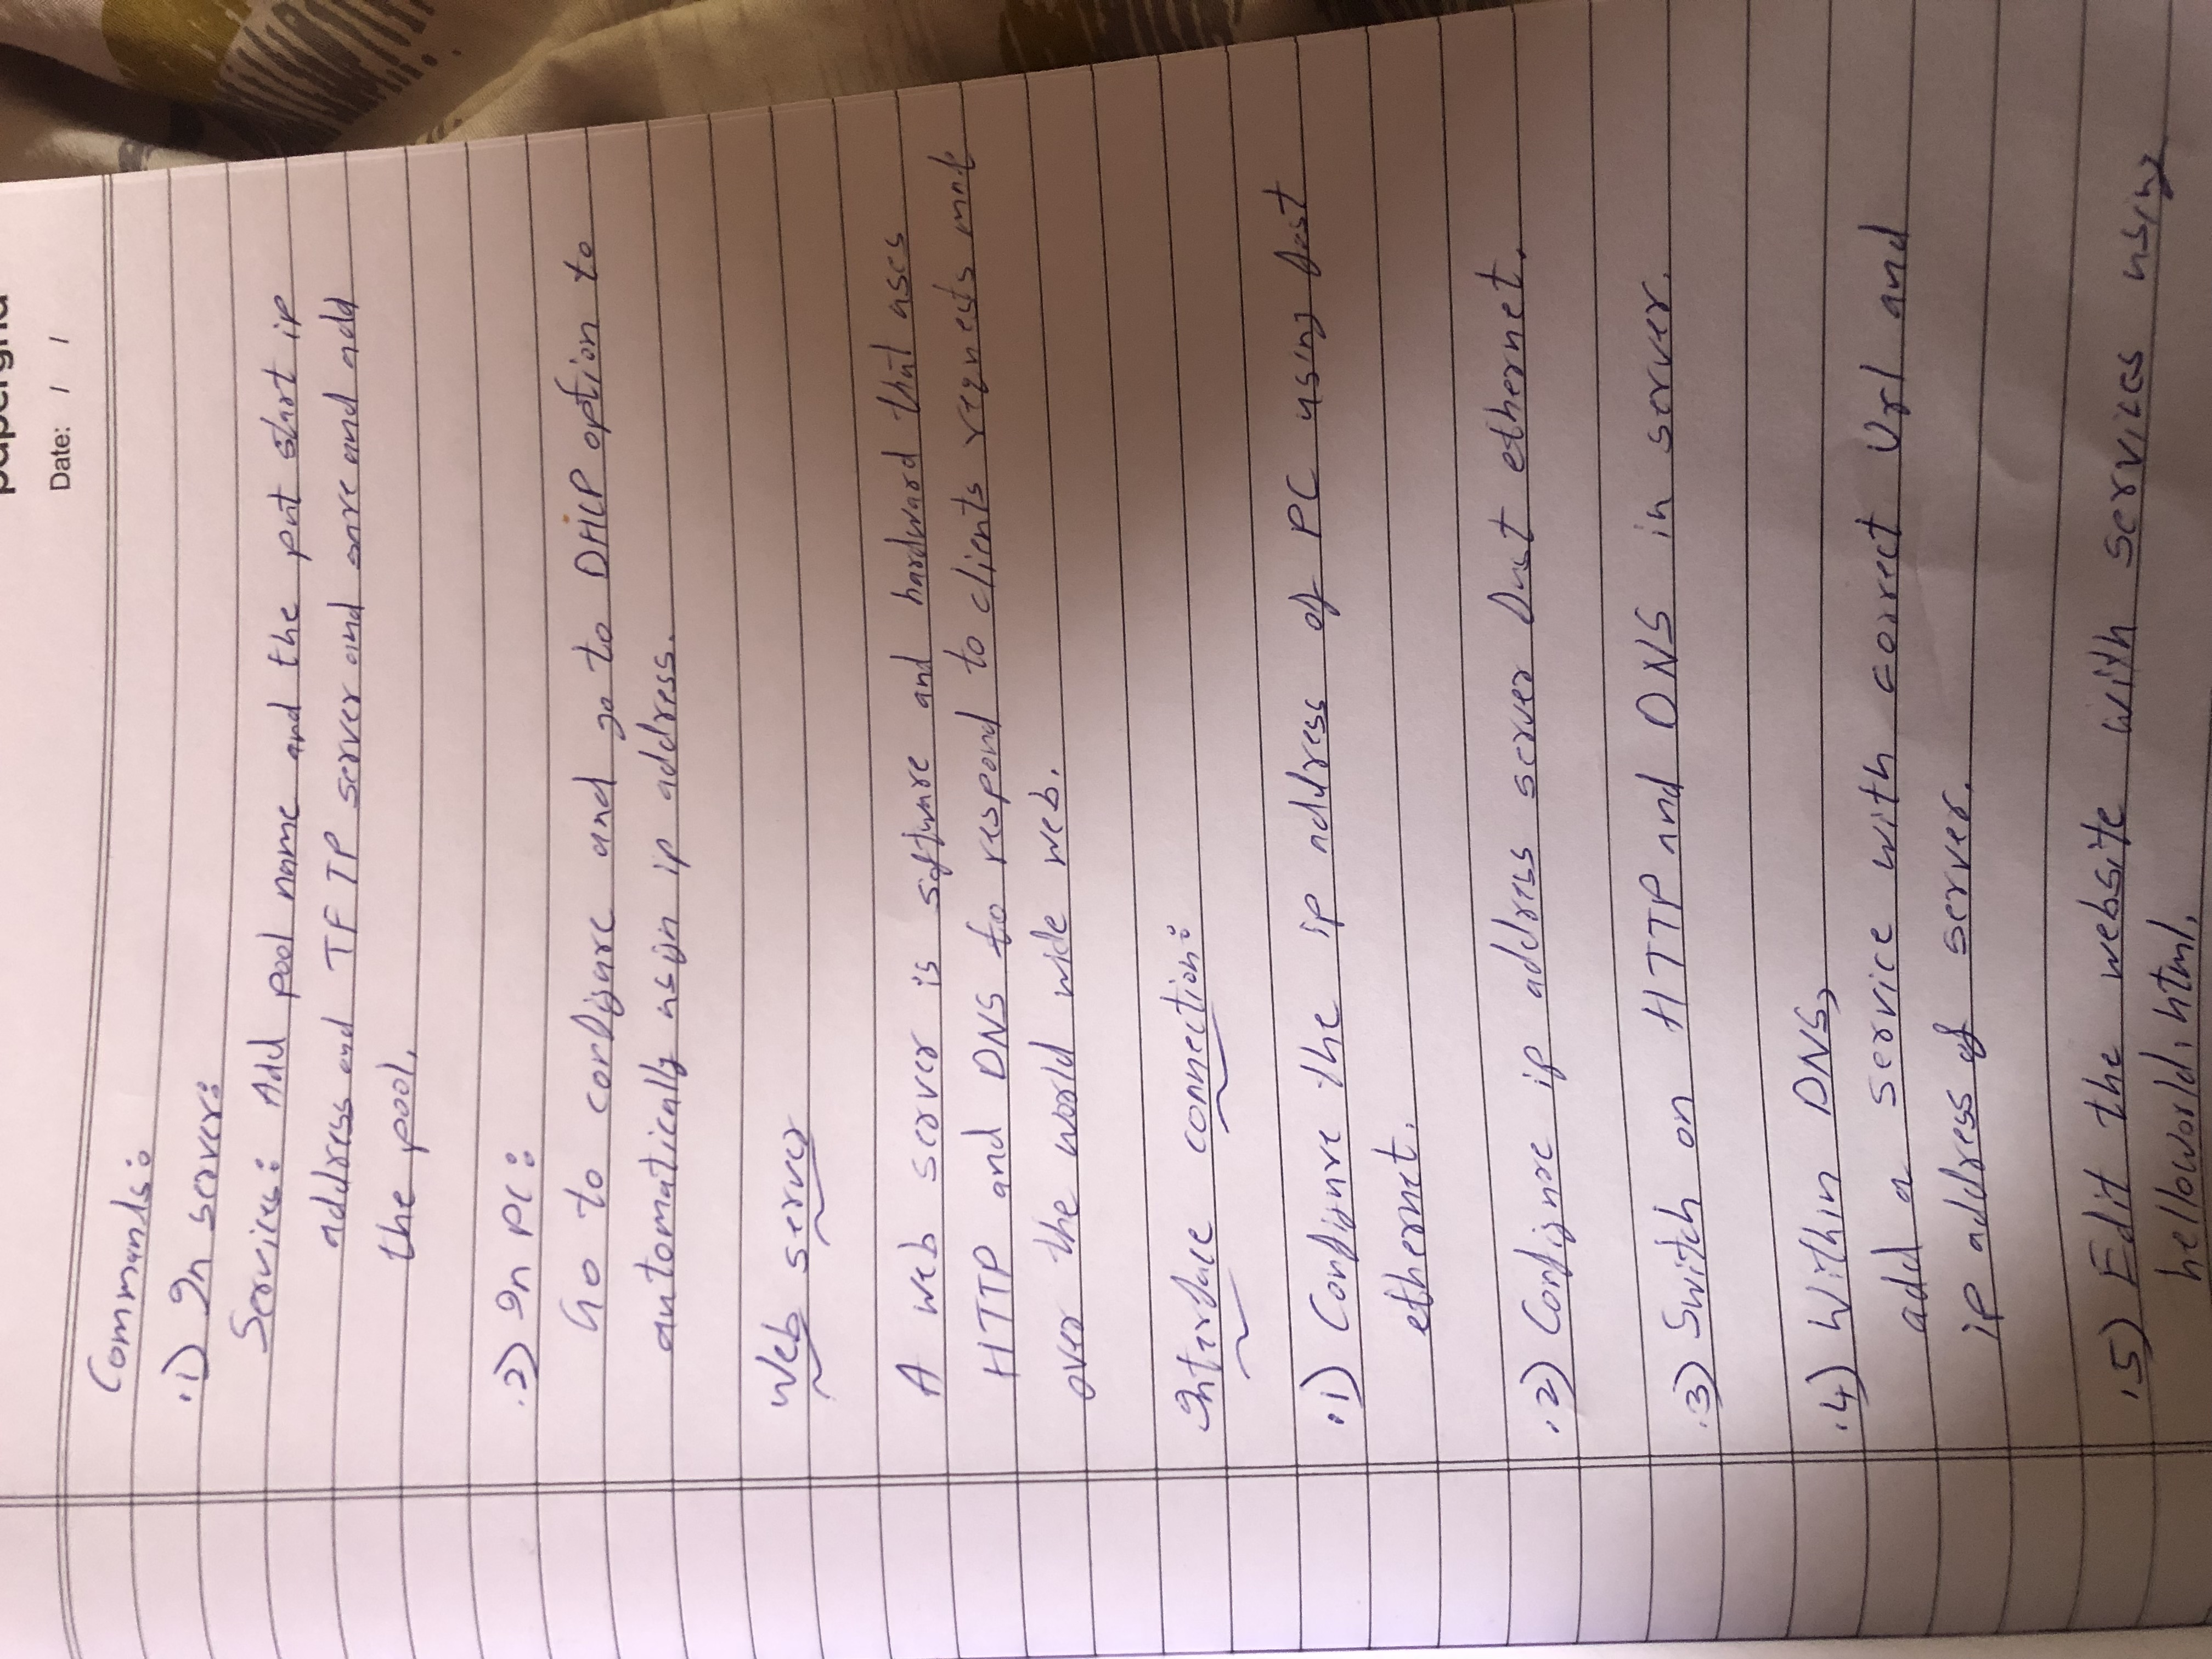 papergrid
Date: / /
Commands:
.1) In server:
Services: Add pool name and the put start ip
address and TFTP server and save and add
the pool.
.2) In PC:
Go to configure and go to DHCP option to
automatically asign ip address.
Web server
A web server is software and hardward that uses
HTTP and DNS to respond to clients requests
over the world wide web.
Interface connection:
.1) Configure the ip address of PC using fast
ethernet.
.2) Configure ip address server fast ethernet.
.3) Switch on HTTP and DNS in server.
.4) Within DNS,
add a service with correct Url and
ip address of server.
.5) Edit the website with services using
helloworld.html.